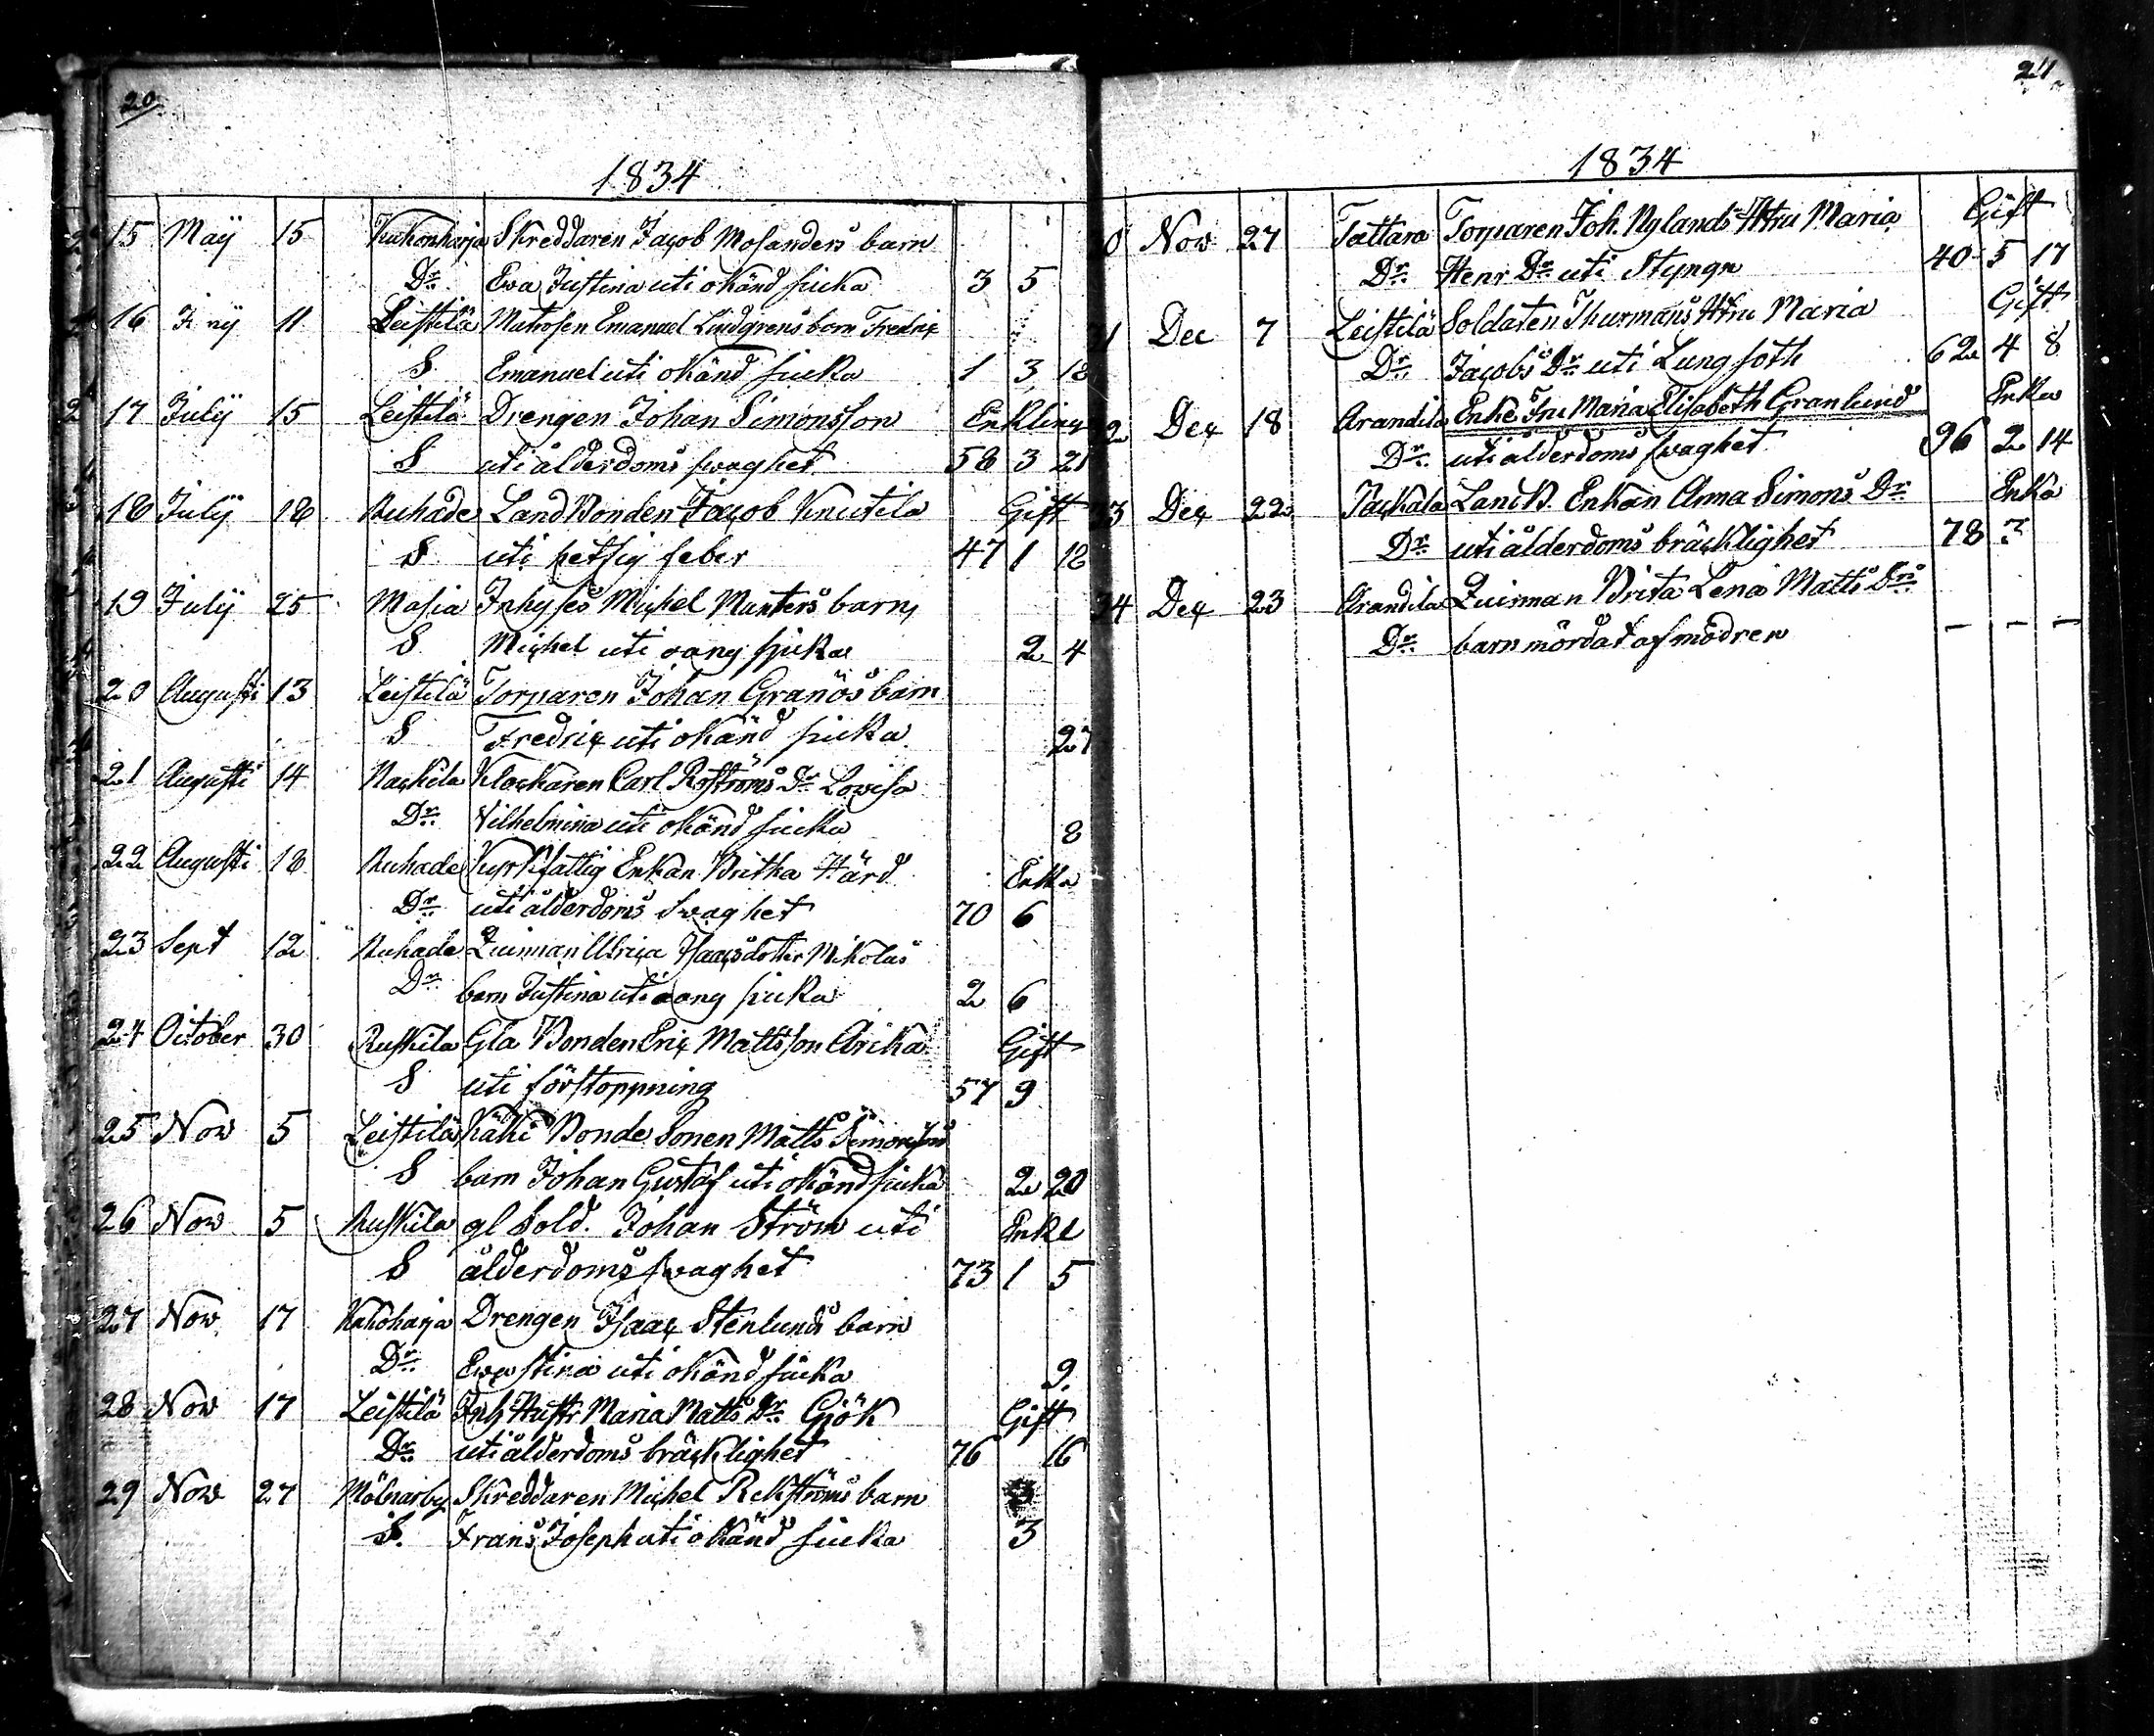 20
1834
15 Maÿ 15 Kukonharja Skreddaren Jacob Molanders barn
Dr. Ewa Justina uti okänd siuka 3 5
16 11 Leistilä Matrosen Emanuel Lindgrens barn Fredric
S Emanuel uti okänd siuka 1 3 18
17 Julÿ 15 Leistilä Drengen Johan Simonsson Enkling
S uti ålderdoms swaghet 58 3 21
18 Julÿ 18 Ruhade Land Bonden Jacob Knutila Gift
S uti hetsig feber 47 1 12
19 Julÿ 25 Masia Inhyses Michel Munters barn
S Michel uti siuka 2 4
20 Augusti 13 Leistilä Torparen Johan Granös barn
S Fredric uti okänd siuka 27
21 Augusti 14 Nackila Klockaren Carl Roströms Dr Lowisa
Dr. Vilhelmina uti okänd siuka 8
22 Augusti 18 Ruhade Kyrkfattig Enkan Britha Hård Enka
Dr. uti ålderdoms Swaghet 70 6
23 Sept 12 Ruhade Quinnan Ulrica Isaacsdotter Mikolas
Dr. barn Justina uti siuka 2 6
24 October 30 Ruskila Gla Bonden Eric Mattsson Arika Gift
S uti förstoppning 57 9
25 Now 5 Leistilä Kähi Bonde Sonen Matts Simonsons
S barn Johan Gustaf uti okänd siuka 2 20
26 Now 5 Ruskila gl Sold. Johan Ström uti Enkl
S ålderdoms swaghet 73 1 5
27 Now 17 Kukoharja Drengen Isaac Stenlunds barn
Dr. Ewa Stina uti okänd siuka 9
28 Now 17 Leistilä Inh Hustr Maria Matts Dr. Gjök Gift
Dr. uti ålderdoms bräcklighet 76 16
29 Now 27 Mölnarby Skreddaren Michel Rekströms barn
S. Frans Joseph uti okänd siuka 3
21
1834
0 Now 27 Tattara Torparen Joh. Nylands Hru Maria Gift
Dr. Henr Dr. uti Styngn 40 5 17
1 Dec 7 Leistilä Soldaten Thurmans Hru Maria Gift
Dr. Jacobs Dr. uti Lungsoth 62 4 8
2 Dec 18 Arandila Enke Fru Maria Elisabeth Granlund Enka
Dr. uti ålderdoms swaghet 96 2 14
3 Dec 22 Tackala Lands. Enkan Anna Simons Dr Enka
Dr. uti ålderdoms bräcklighet 78 7
24 Dec 23 Arandila Quinnan Brita Lena Matts Drs
Dr. barn mördat af modren — — —